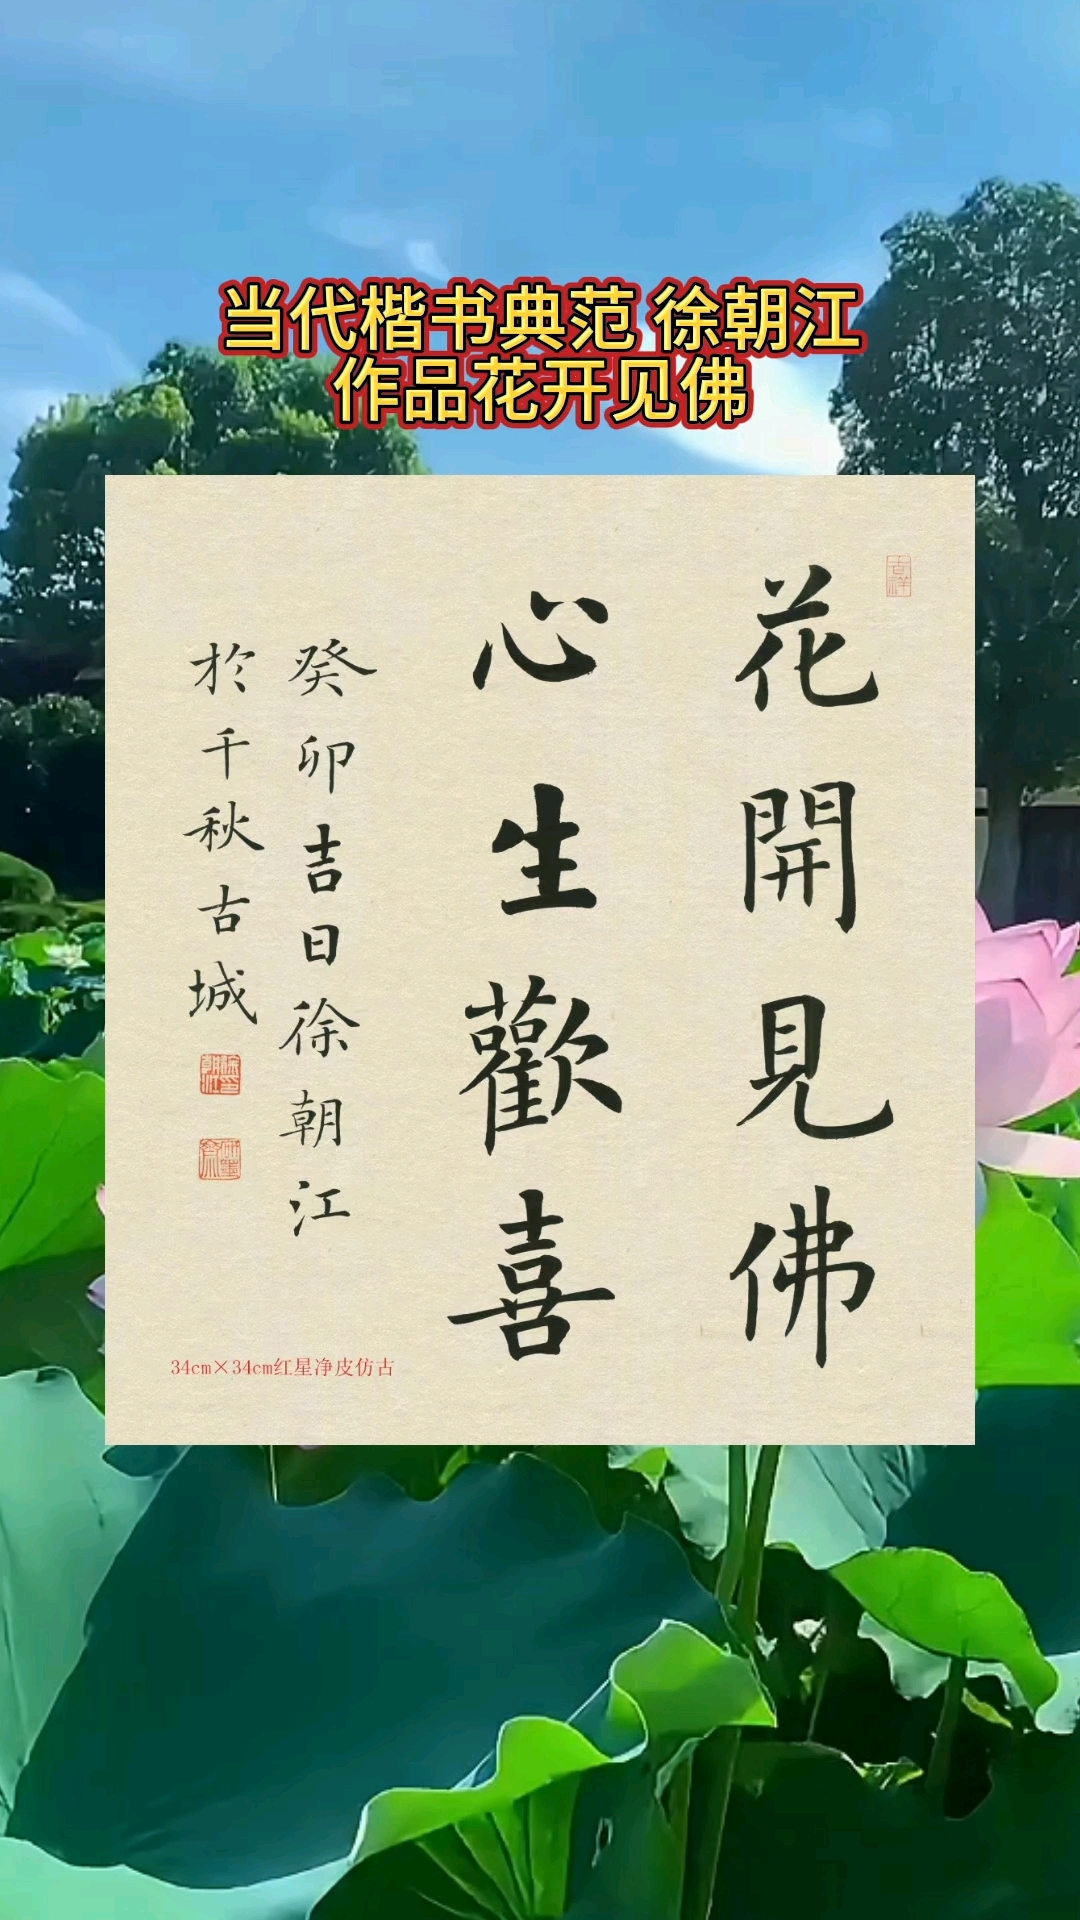 当代楷书典范 徐朝江
作品花开见佛
吉祥
花開見佛
心生歡喜
癸卯吉日徐朝江
於千秋古城
34cm×34cm红星净皮仿古